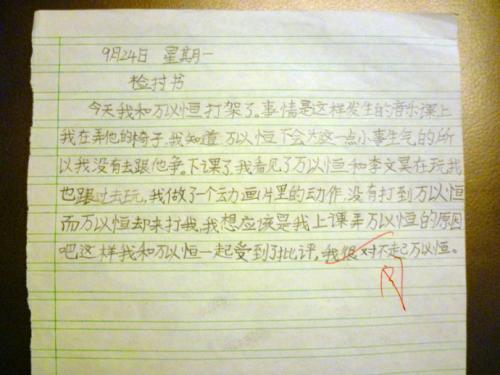 9月24日 星期一
检讨书
今天我和万以恒打架了,事情是这样发生的音乐课上
我在弄他的椅子,我知道万以恒不会为这一点小事生气的所
以我没有去跟他争。下课了,我看见了万以恒和李文昊在玩我
也跟过去玩,我做了一个动画片里的动作,没有打到万以恒
而万以恒却来打我,我想应该是我上课弄万以恒的原因
吧这样我和万以恒一起受到了批评,我很对不起万以恒。
阅